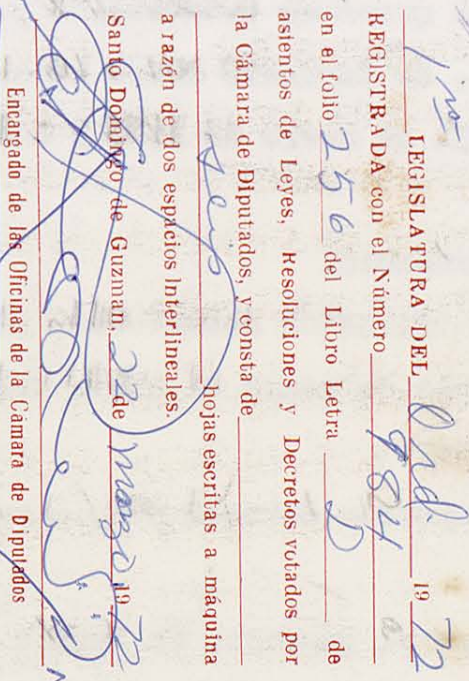 1ra LEGISLATURA DEL Ord 1972
REGISTRADA con el Número 984
en el folio 256 del Libro Letra D de
asientos de Leyes, Resoluciones y Decretos votados por
la Cámara de Diputados, y consta de
seis hojas escritas a máquina
a razón de dos espacios interlineales.
Santo Domingo de Guzman 22 de marzo 1972
Encargado de las Oficinas de la Cámara de Diputados